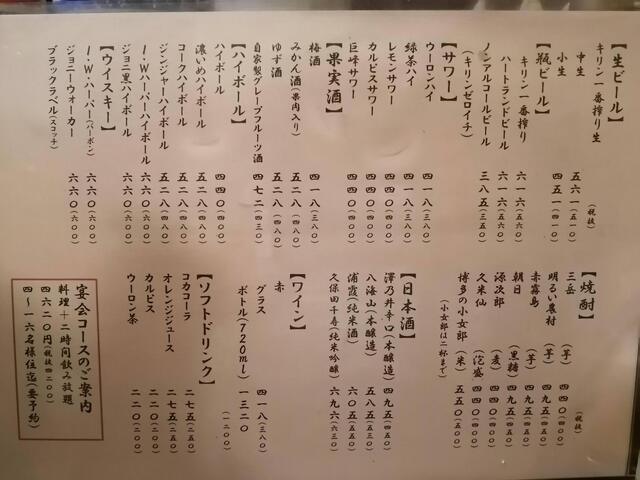 【生ビール】
キリン一番搾り生
(税抜)
中生 五六一(五一〇)
小生 四五一(四一〇)
【瓶ビール】
キリン一番搾り 六一六(五六〇)
ハートランドビール 六一六(五六〇)
ノンアルコールビール 三八五(三五〇)
(キリンゼロイチ)
【サワー】
ウーロンハイ 四一八(三八〇)
緑茶ハイ 四一八(三八〇)
レモンサワー 四四〇(四〇〇)
カルピスサワー 四四〇(四〇〇)
巨峰サワー 四四〇(四〇〇)
【果実酒】
梅酒 四一八(三八〇)
みかん酒(果肉入り) 五二八(四八〇)
ゆず酒 五二八(四八〇)
自家製グレープフルーツ酒 四七二(四三〇)
【ハイボール】
ハイボール 四四〇(四〇〇)
濃いめハイボール 五二八(四八〇)
コークハイボール 五二八(四八〇)
ジンジャーハイボール 五二八(四八〇)
I・Wハーパーハイボール 六六〇(六〇〇)
ジョニ黒ハイボール 六六〇(六〇〇)
【ウイスキー】
I・W・ハーパー(バーボン) 六六〇(六〇〇)
ジョニーウォーカー 六六〇(六〇〇)
ブラックラベル(スコッチ)
【焼酎】
(税抜)
三岳 (芋) 四四〇(四〇〇)
明るい農村 (芋) 四九五(四五〇)
赤霧島 (芋) 四九五(四五〇)
朝日 (黒糖) 四九五(四五〇)
源次郎 (麦) 四九五(四五〇)
久米仙 (泡盛) 四九五(四五〇)
博多の小女郎 (米) 五五〇(五〇〇)
(小女郎は二杯まで)
【日本酒】
澤乃井辛口(本醸造) 四九五(四五〇)
八海山(本醸造) 五八五(五三〇)
浦霞(純米酒) 六〇五(五五〇)
久保田千寿(純米吟醸) 六九六(六三〇)
【ワイン】
赤
グラス 四一八(三八〇)
ボトル(720ml) 一三二〇
(一二〇〇)
【ソフトドリンク】
コカコーラ 二七五(二五〇)
オレンジジュース 二七五(二五〇)
カルピス 二二〇(二〇〇)
ウーロン茶 二二〇(二〇〇)
宴会コースのご案内
料理+二時間飲み放題
四六二〇円(税抜四二〇〇)
四〜一六名様位迄(要予約)